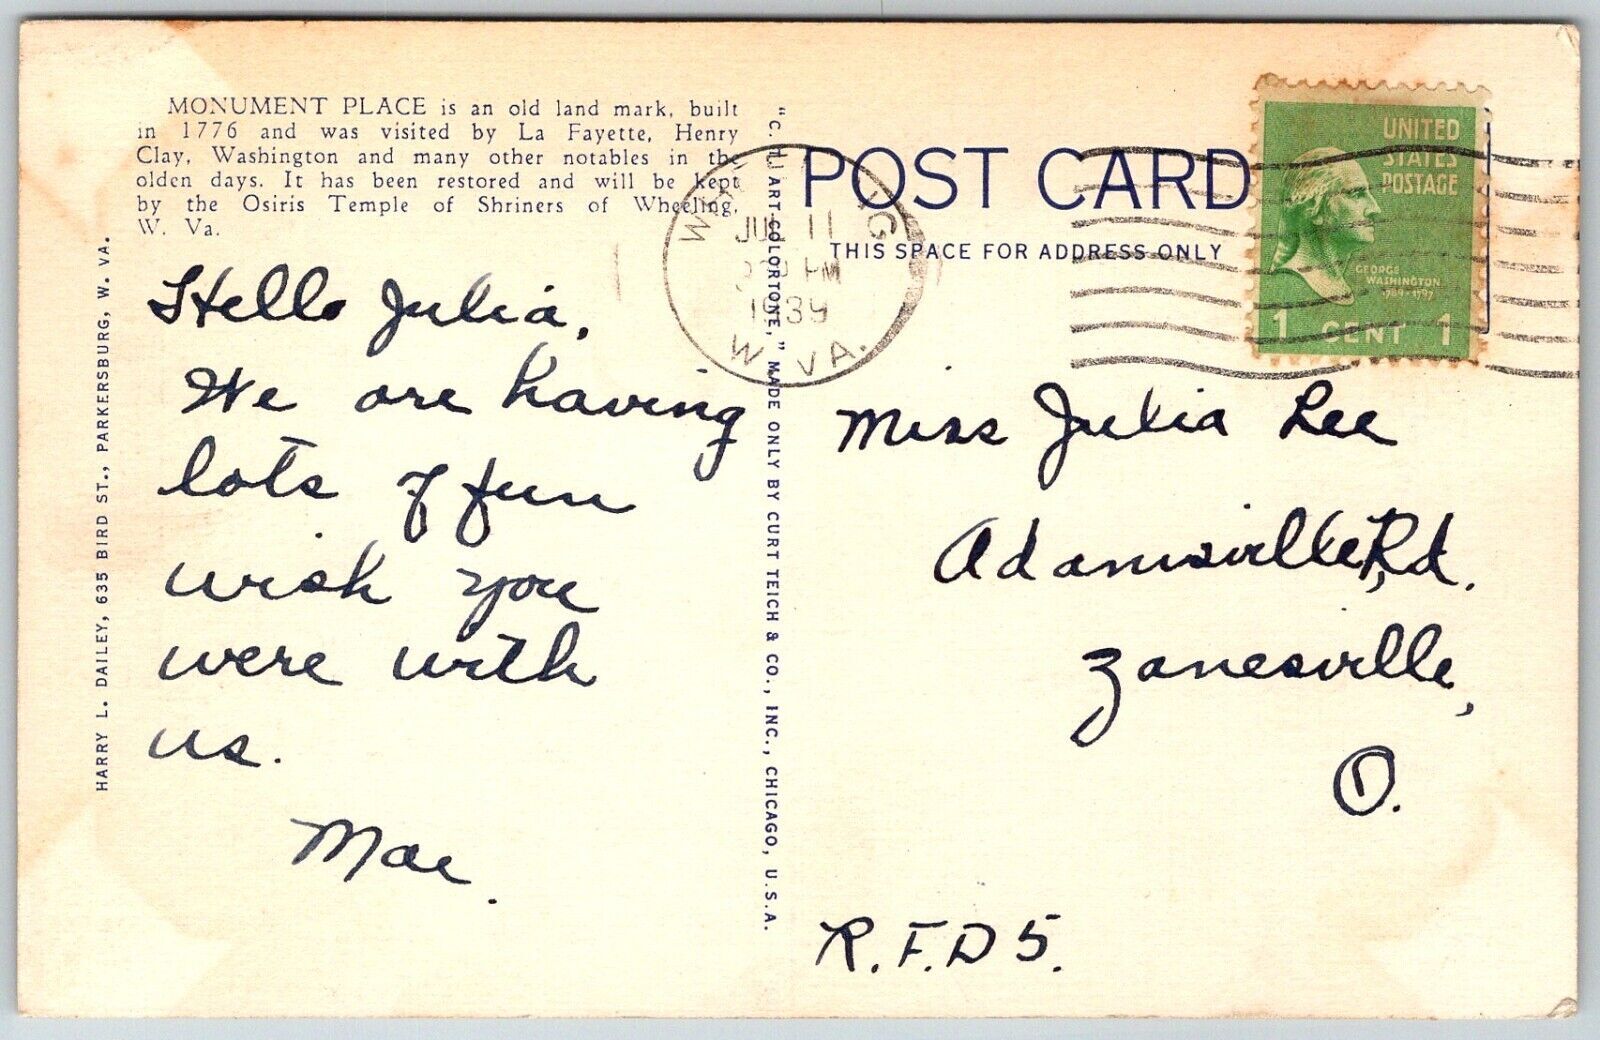 MONUMENT PLACE is an old land mark, built
in 1776 and was visited by La Fayette, Henry
Clay, Washington and many other notables in the
olden days. It has been restored and will be kept
by the Osiris Temple of Shriners of Wheeling,
W. Va.
HARRY L. DAILEY, 635 BIRD ST., PARKERSBURG, W. VA.
Hello Julia,
We are having
lots of fun
wish you
were with
us.
Mae.
"C. T. ART-COLORTONE," MADE ONLY BY CURT TEICH & CO., INC., CHICAGO, U.S.A.
JUL 11
PM
1939
W. VA.
POST CARD
THIS SPACE FOR ADDRESS ONLY
UNITED
STATES
POSTAGE
GEORGE
WASHINGTON
1789-1797
1 CENT 1
Miss Julia Lee
Adamsville, Rd.
Zanesville,
O.
R.F.D 5.